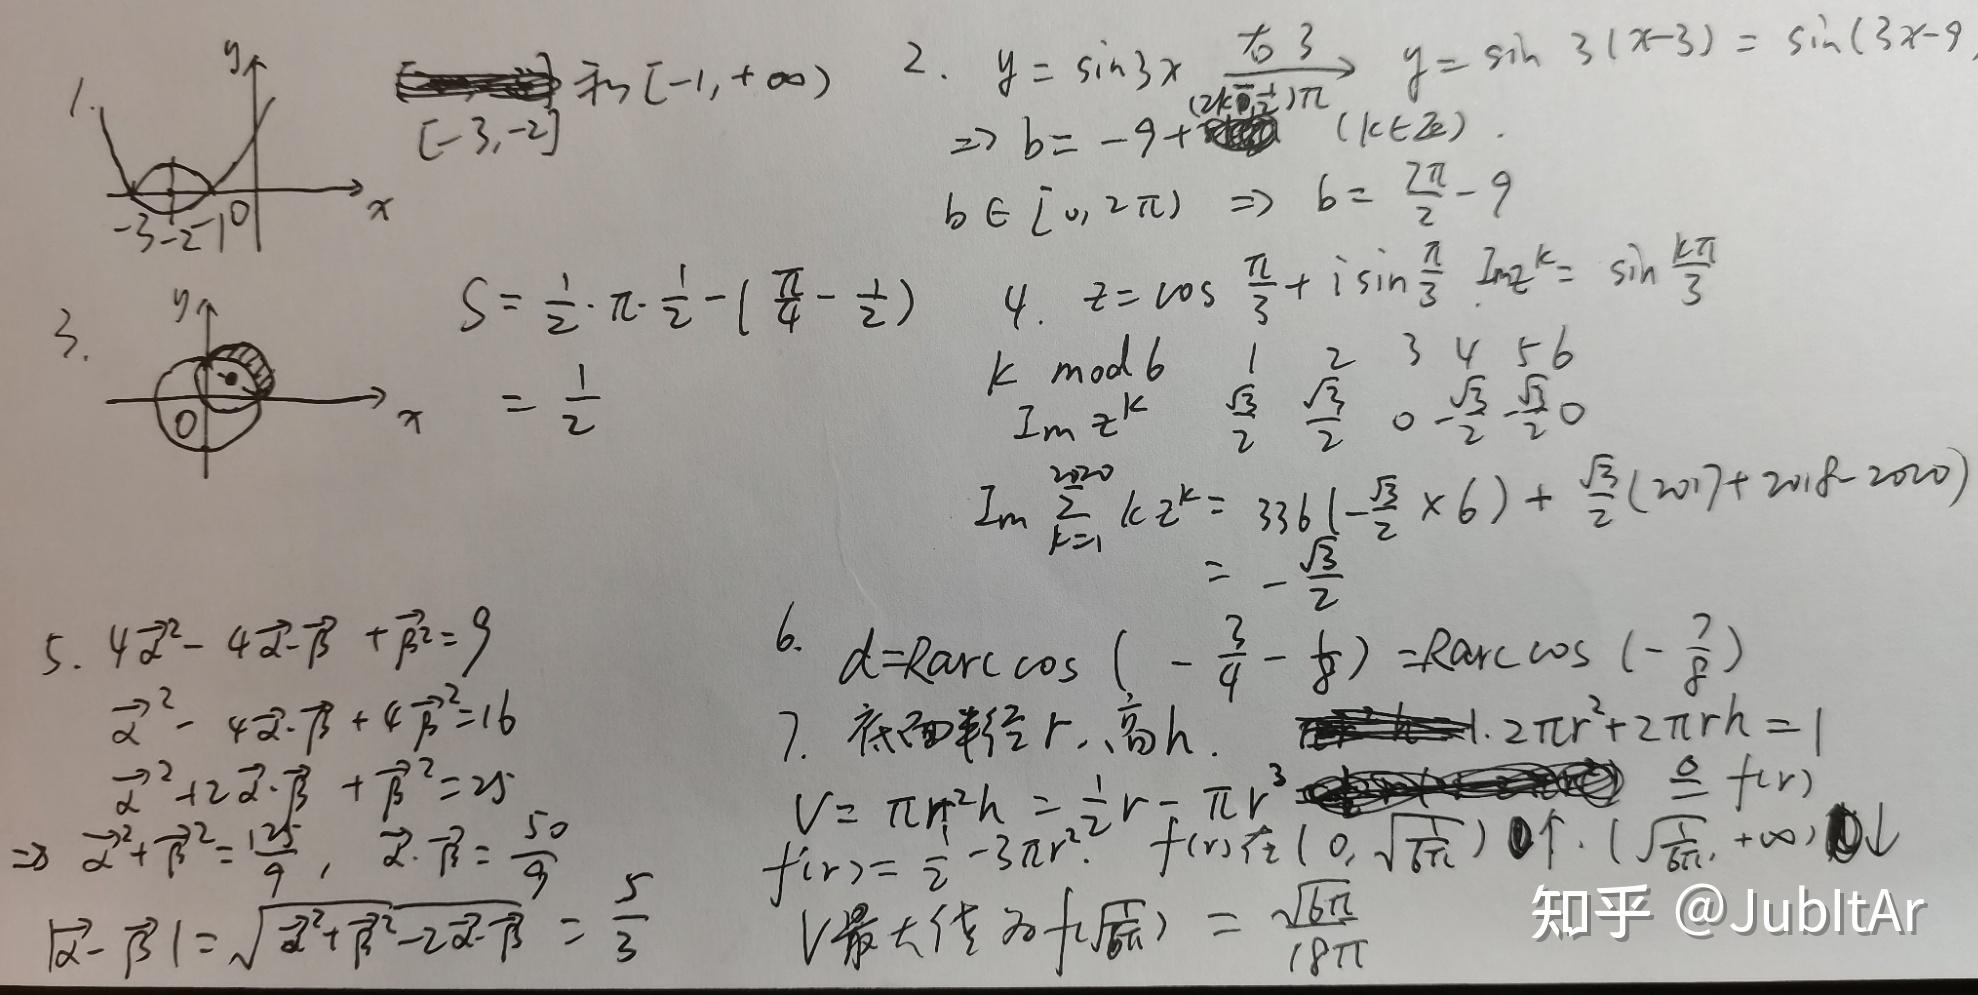 1. y x O -3 -2 -1
和[-1,+∞)
[-3,-2]
2. y = sin3x 右3 → y = sin 3(x-3) = sin(3x-9)
⇒ b = -9+(2k+½)π (k∈Z).
b∈[0,2π) ⇒ b = 7π/2 - 9
3. y x O
S = 1/2·π·1/2-(π/4-1/2)
= 1/2
4. z = cos π/3 + i sin π/3 Imz^k = sin kπ/3
k mod 6 1 2 3 4 5 6
Im z^k √3/2 √3/2 0 -√3/2 -√3/2 0
Im Σ_{k=1}^{2020} kz^k = 336(-√3/2 × 6) + √3/2(2017+2018-2020)
= -√3/2
5. 4α⃗² - 4α⃗·β⃗ + β⃗² = 9
α⃗² - 4α⃗·β⃗ + 4β⃗² = 16
α⃗² + 2α⃗·β⃗ + β⃗² = 25
⇒ α⃗² + β⃗² = 125/9, α⃗·β⃗ = 50/9
|α⃗ - β⃗| = √(α⃗²+β⃗²-2α⃗·β⃗) = 5/3
6. d = R arccos (-3/4 - 1/8) = R arccos (-7/8)
7. 底面半径r,高h. 2πr²+2πrh = 1
V = πr²h = ½r - πr³ ≜ f(r)
f'(r) = ½ - 3πr². f(r)在(0,√(1/6π))↑.(√(1/6π),+∞)↓
V最大值为f(√(1/6π)) = √(6π)/18π
知乎 @JubItAr